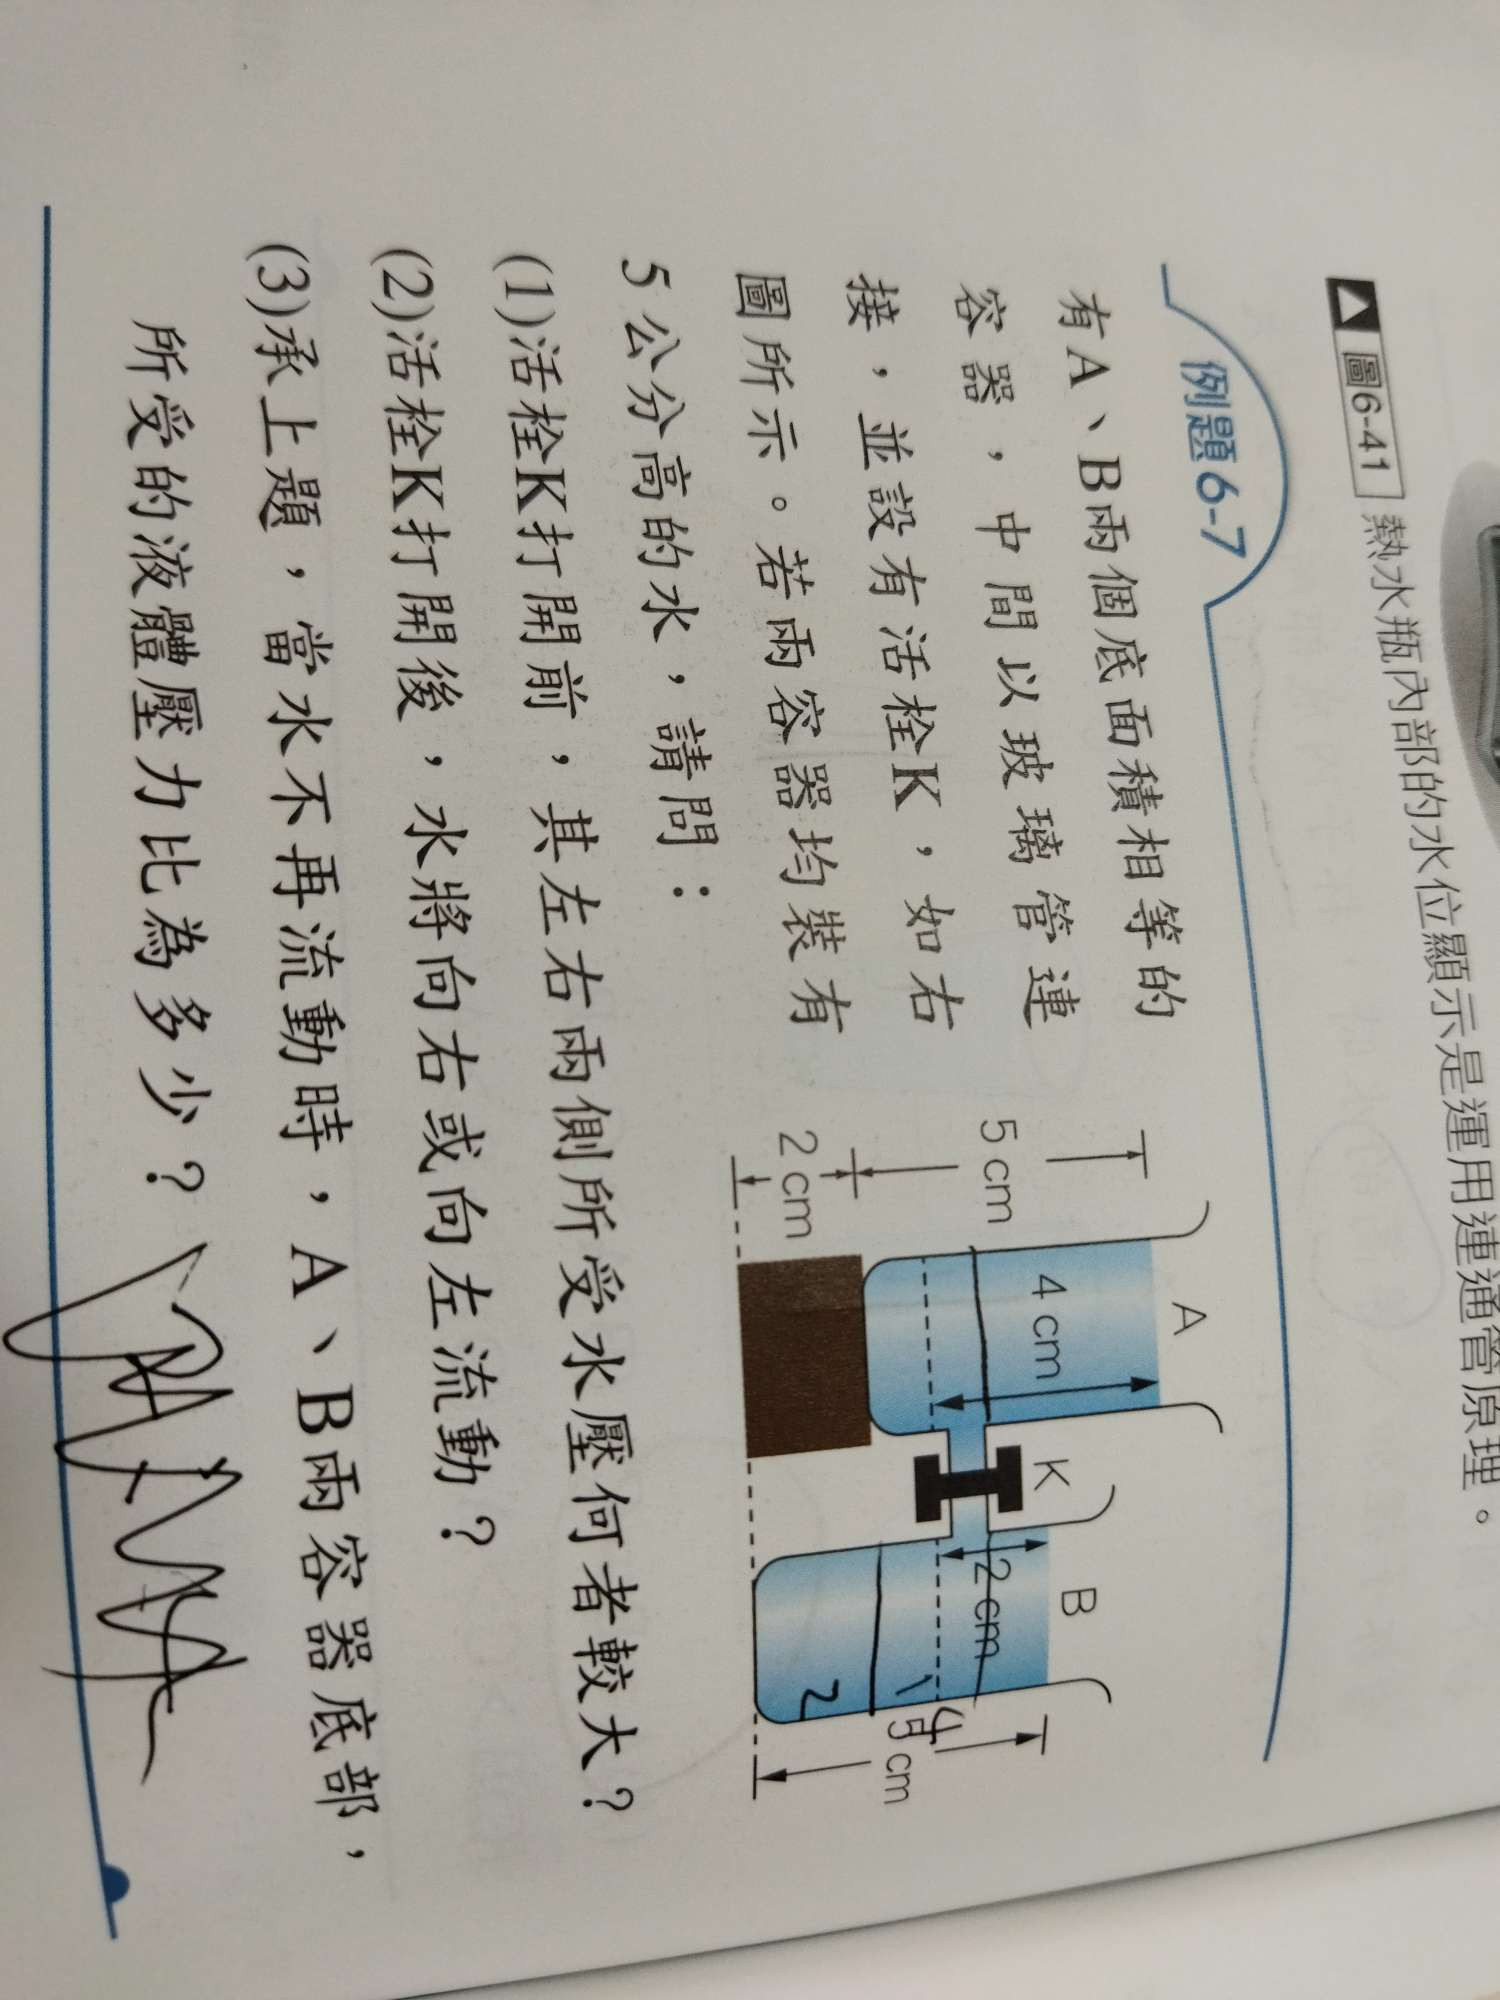 ▲圖6-41 熱水瓶內部的水位顯示是運用連通管原理。
例題6-7
有A、B兩個底面積相等的
容器，中間以玻璃管連
接，並設有活栓K，如右
圖所示。若兩容器均裝有
5公分高的水，請問：
A
K
B
5 cm
4 cm
2 cm
2 cm
5 cm
4
1
2
(1)活栓K打開前，其左右兩側所受水壓何者較大？
(2)活栓K打開後，水將向右或向左流動？
(3)承上題，當水不再流動時，A、B兩容器底部，
所受的液體壓力比為多少？